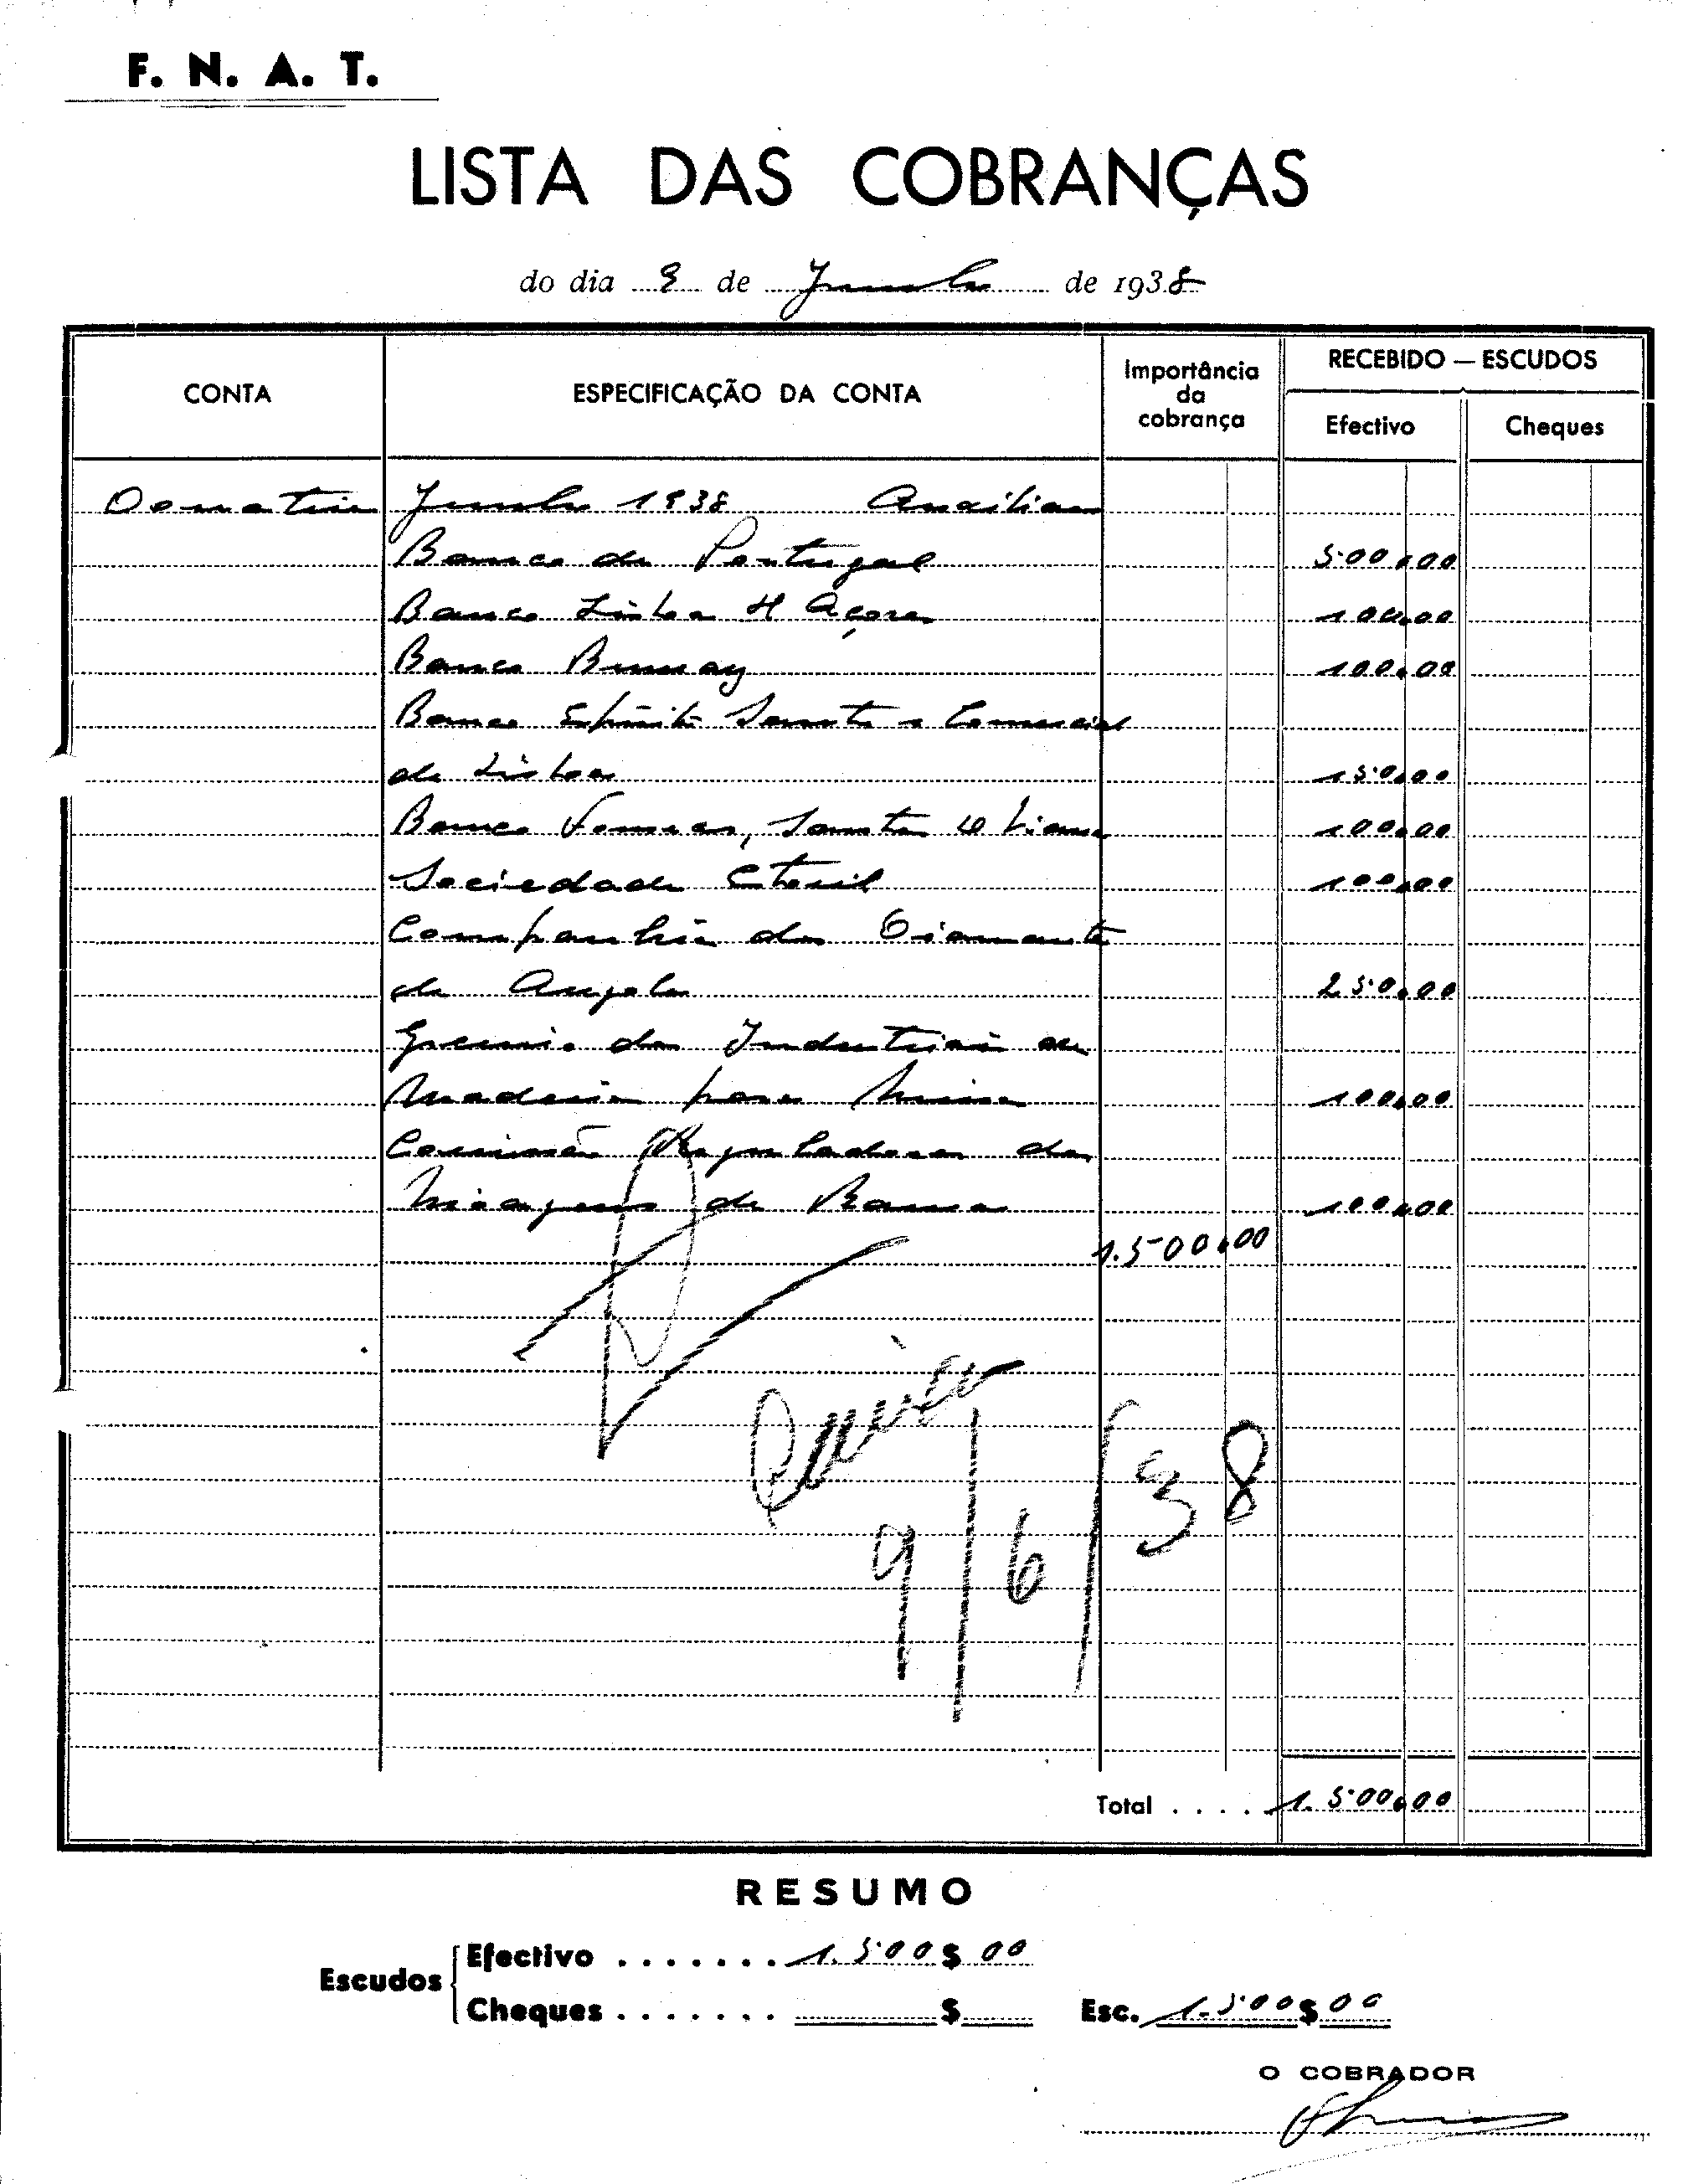 F. N. A. T.
LISTA DAS COBRANÇAS
do dia 9 de Junho de 1938
CONTA ESPECIFICAÇÃO DA CONTA Importância da cobrança RECEBIDO — ESCUDOS
Efectivo Cheques
Junho 1938 Auxiliar
Banco de Portugal 500.00
Banco Lisboa & Açores 100.00
Banco Burnay 100.00
Banco Espirito Santo e Comercial
de Lisboa 150.00
Banco Fonsecas, Santos & Viana 100.00
Sociedade Estoril 100.00
Companhia dos Diamantes
de Angola 250.00
Gremio dos Industriais de
Madeira para Minas 100.00
Comissão Reguladora das
Moagens de Ramas 100.00
1.500.00
9/6/38
Total . . . . . 1.500.00
RESUMO
Escudos
Efectivo . . . . . . . 1.500$00
Cheques . . . . . . . $ Esc. 1.500$00
O COBRADOR